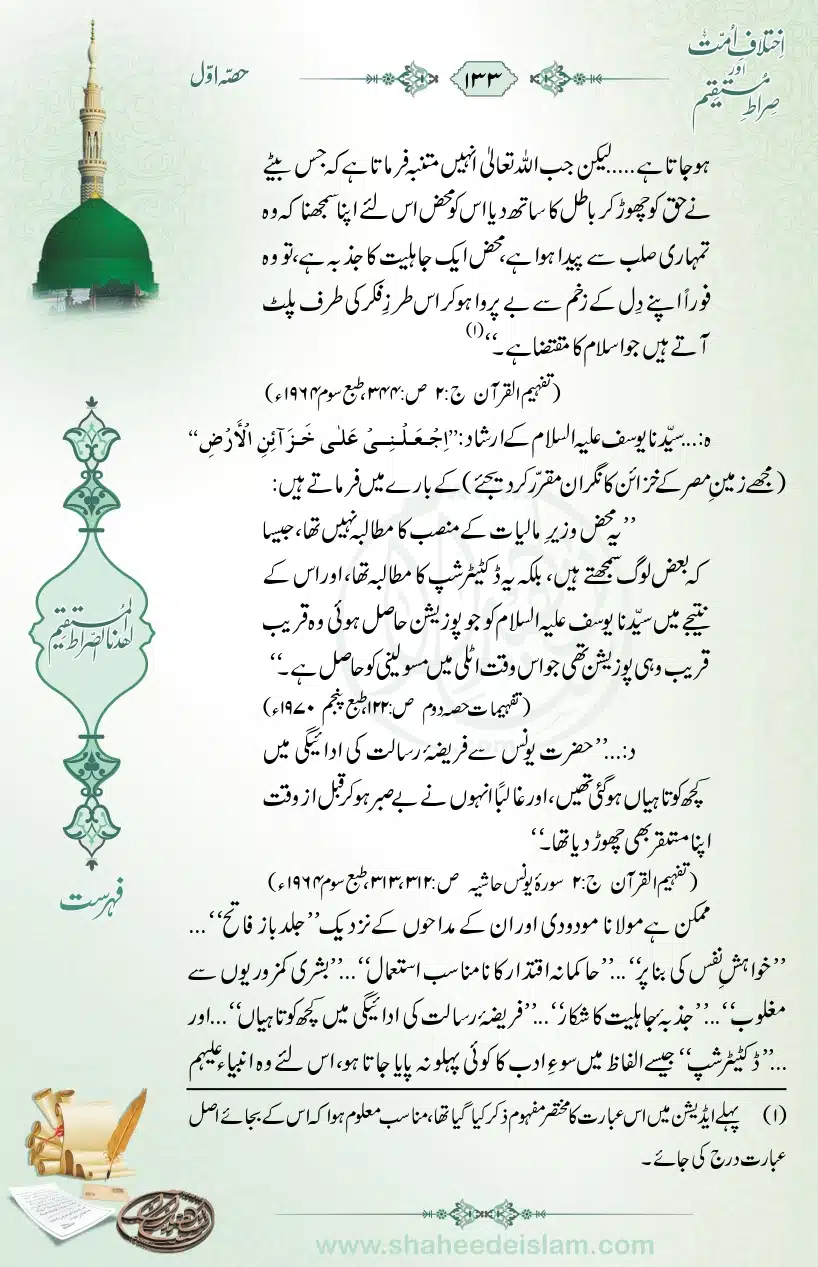 اِختلافِ اُمّت
اور
صِراطِ مُستقیم
۱۳۳
حصّہ اوّل
ہوجاتا ہے.....لیکن جب اللہ تعالیٰ انہیں متنبہ فرماتا ہے کہ جس بیٹے
نے حق کو چھوڑ کر باطل کا ساتھ دیا اس کو محض اس لئے اپنا سمجھنا کہ وہ
تمہاری صلب سے پیدا ہوا ہے، محض ایک جاہلیت کا جذبہ ہے، تو وہ
فوراً اپنے دِل کے زخم سے بے پروا ہوکر اس طرزِ فکر کی طرف پلٹ
آتے ہیں جو اسلام کا مقتضا ہے۔‘‘(۱)
(تفہیم القرآن ج:۲ ص:۳۴۴، طبع سوم ۱۹۶۴ء)
ہ:...سیّدنا یوسف علیہ السلام کے ارشاد:’’اِجْعَلْنِیْ عَلٰی خَزَآئِنِ الْأَرْضِ‘‘
(مجھے زمینِ مصر کے خزائن کا نگران مقرّر کردیجئے) کے بارے میں فرماتے ہیں:
’’یہ محض وزیرِ مالیات کے منصب کا مطالبہ نہیں تھا، جیسا
کہ بعض لوگ سمجھتے ہیں، بلکہ یہ ڈکٹیٹرشپ کا مطالبہ تھا، اور اس کے
نتیجے میں سیّدنا یوسف علیہ السلام کو جو پوزیشن حاصل ہوئی وہ قریب
قریب وہی پوزیشن تھی جو اس وقت اٹلی میں مسولینی کو حاصل ہے۔‘‘
(تفہیمات حصہ دوم ص:۱۲۲، طبع پنجم ۱۹۷۰ء)
د:...’’حضرت یونس سے فریضۂ رسالت کی ادائیگی میں
کچھ کوتاہیاں ہوگئی تھیں، اور غالباً انہوں نے بے صبر ہوکر قبل از وقت
اپنا مستقر بھی چھوڑ دیا تھا۔‘‘
(تفہیم القرآن ج:۲ سورۂ یونس حاشیہ ص:۳۱۲، ۳۱۳، طبع سوم ۱۹۶۴ء)
ممکن ہے مولانا مودودی اور ان کے مداحوں کے نزدیک ’’جلد باز فاتح‘‘...
’’خواہشِ نفس کی بنا پر‘‘...’’حاکمانہ اقتدار کا نامناسب استعمال‘‘...’’بشری کمزوریوں سے
مغلوب‘‘...’’جذبۂ جاہلیت کا شکار‘‘...’’فریضۂ رسالت کی ادائیگی میں کچھ کوتاہیاں‘‘...اور
...’’ڈکٹیٹرشپ‘‘ جیسے الفاظ میں سوءِ ادب کا کوئی پہلو نہ پایا جاتا ہو، اس لئے وہ انبیاء علیہم
(۱) پہلے ایڈیشن میں اس عبارت کا مختصر مفہوم ذکر کیا گیا تھا، مناسب معلوم ہوا کہ اس کے بجائے اصل
عبارت درج کی جائے۔
اھدنا الصّراط المُستقیم
فہرست
www.shaheedeislam.com